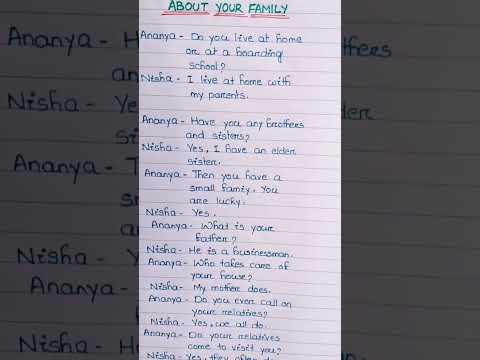 ABOUT YOUR FAMILY
Ananya - Do you live at home
or at a boarding
school?
Nisha - I live at home with
my parents.
Ananya - Have you any brothers
and sisters?
Nisha - Yes, I have an elder
sister.
Ananya - Then you have a
small family. You
are lucky.
Nisha - Yes.
Ananya - What is your
father?
Nisha - He is a businessman.
Ananya - Who takes care of
your house?
Nisha - My mother does.
Ananya - Do you ever call on
your relatives?
Nisha - Yes, we all do.
Ananya - Do your relatives
come to visit you?
Nisha - Yes, they often do